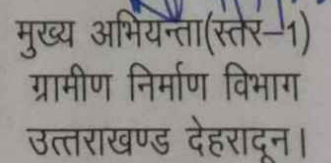 मुख्य अभियन्ता(स्तर–1)
ग्रामीण निर्माण विभाग
उत्तराखण्ड देहरादून।